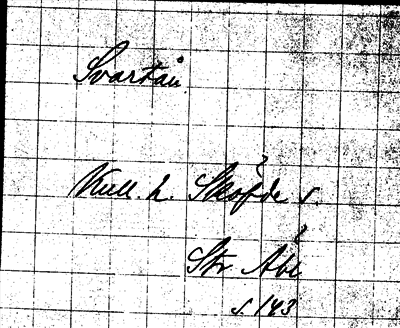 Svartån
Kull. h. Sköfde s.
Str Åbc
s. 143